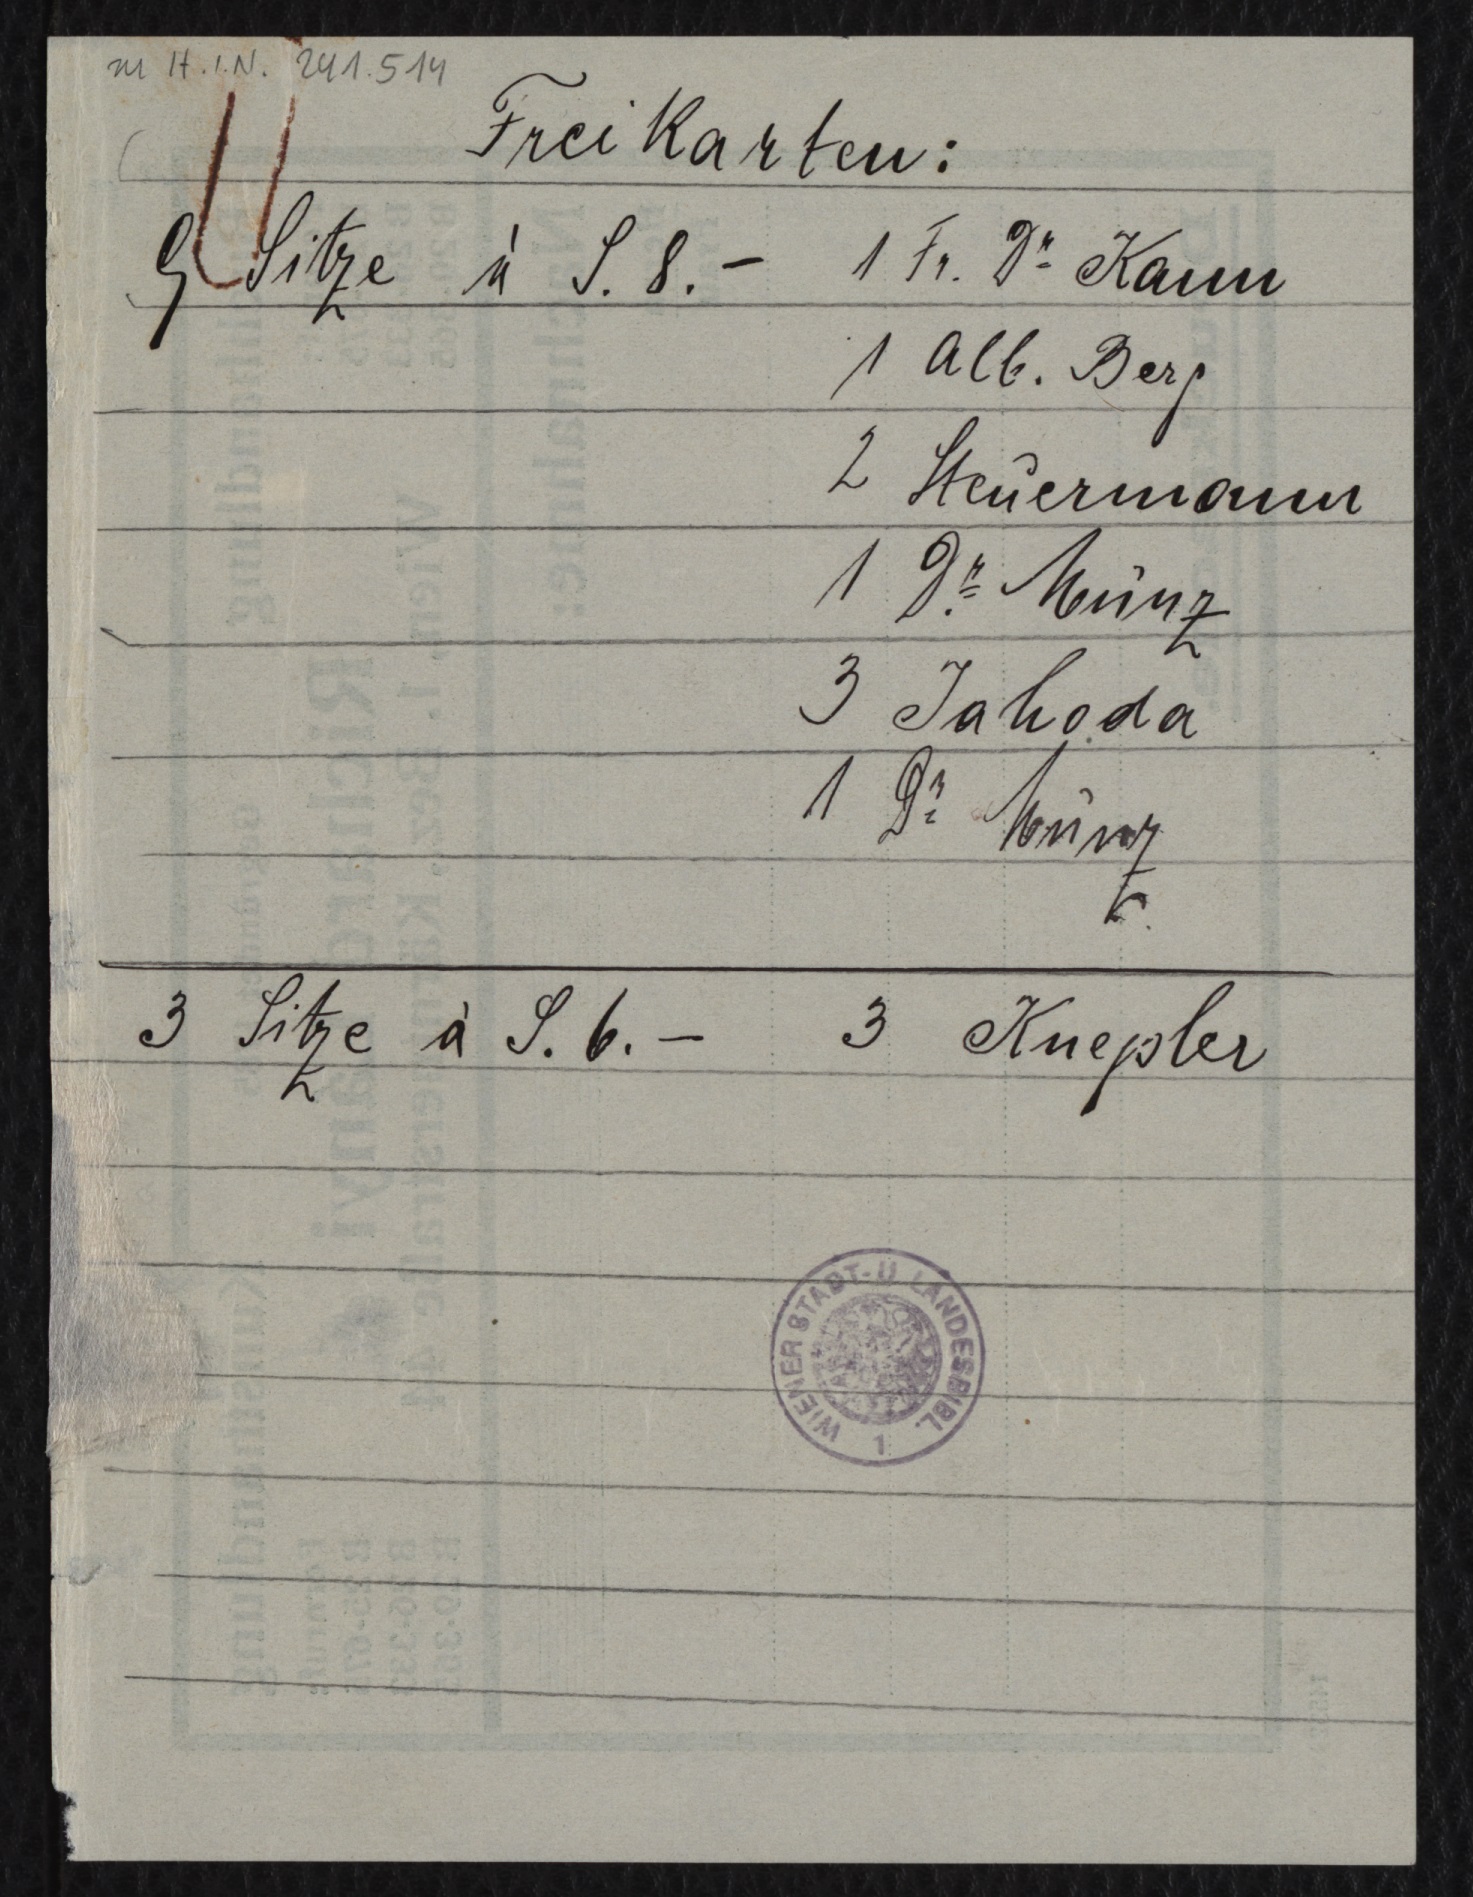 zu H.I.N. 241.514
Freikarten:
9 Sitze à S. 8.– 1 Fr. Dr Kann
1 Alb. Berg
2 Steuermann
1 Dr. Münz
3 Jahoda
1 Dr. Münz
3 Sitze à S. 6.– 3 Knepler
WIENER STADT-U. LANDESBIBL.
1